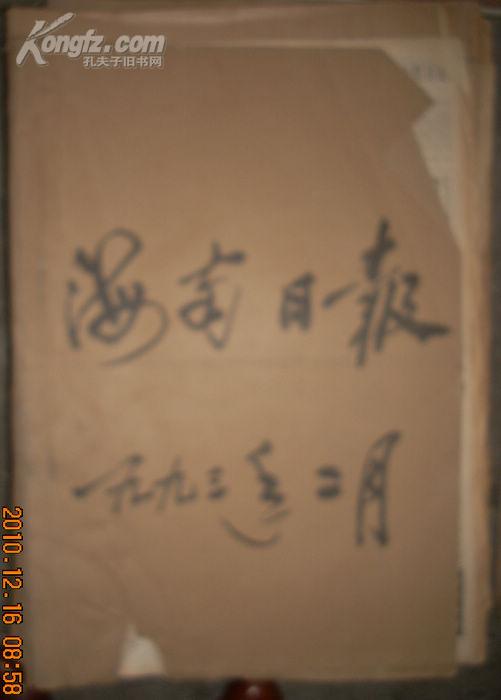 Kongfz.com
孔夫子旧书网
海南日报
一九九三年二月
2010.12.16 08:58